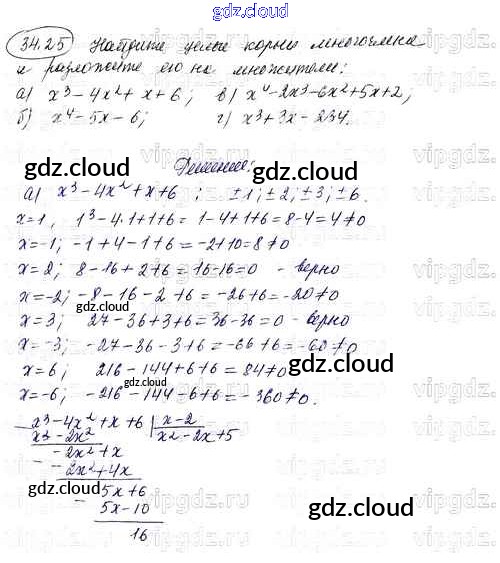 gdz.cloud
34.25 Найдите целые корни многочлена
и разложите его на множители:
а) x³-4x²+x+6; в) x⁴-2x³-6x²+5x+2;
б) x⁴-5x-6; г) x³+3x-234.
gdz.cloud
gdz.cloud
Решение:
а) x³-4x²+x+6; ±1; ±2; ±3; ±6.
x=1, 1³-4·1+1+6=1-4+1+6=8-4=4≠0
x=-1; -1+4-1+6=-2+10=8≠0
x=2; 8-16+2+6=16-16=0 - верно
x=-2; -8-16-2+6=-26+6=-20≠0
x=3; 27-36+3+6=36-36=0 - верно
x=-3; -27-36-3+6=-66+6=-60≠0
x=6; 216-144+6+6=84≠0
x=-6; -216-144-6+6=-360≠0.
gdz.cloud
gdz.cloud
- x³-4x²+x+6 | x-2
x³-2x² x²-2x+5
- -2x²+x
-2x²+4x
- 5x+6
5x-10
16
gdz.cloud
gdz.cloud